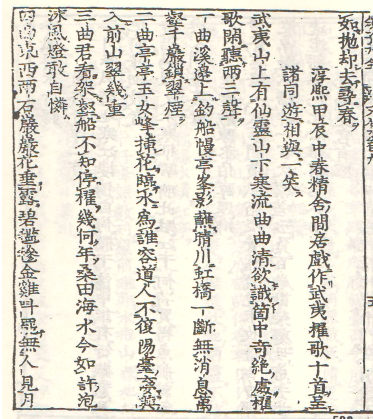 如拋却去尋春
淳熙甲辰中春精舍間居戲作武夷櫂歌十首呈
諸同遊相與一笑
武夷山上有仙靈山下寒流曲曲清欲識箇中奇絶處櫂
歌閑聽兩三聲
一曲溪邊上釣船幔亭峯影蘸晴川虹橋一斷無消息萬
壑千巖鎖翠煙
二曲亭亭玉女峰揷花臨水爲誰容道人不復陽臺夢興
入前山翠幾重
三曲君看架壑船不知停櫂幾何年桑田海水今如許泡
沫風燈敢自憐
四曲東西兩石巖巖花垂露碧㲯毿金雞叫罷無人見月